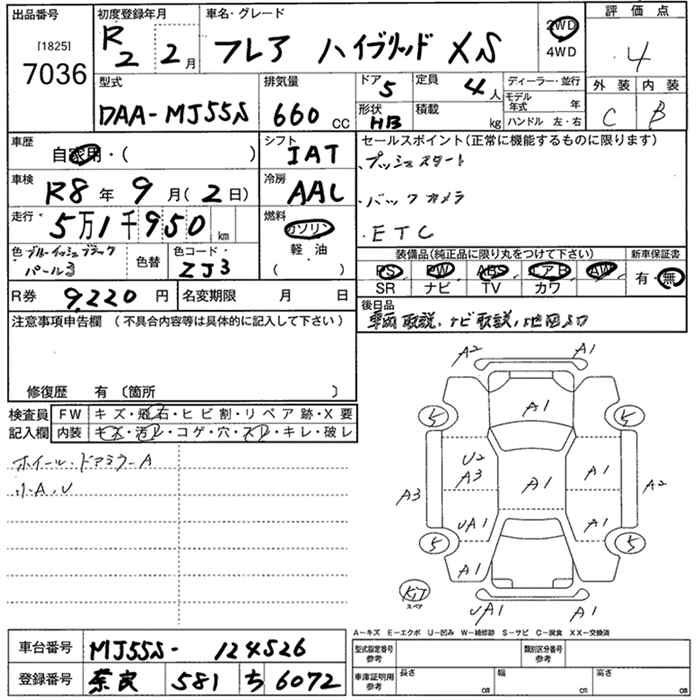 出品番号
[1825]
7036
初度登録年月
R2 2月
車名・グレード
フレア ハイブリッド XS
2WD
4WD
評価点
4
外装 内装
C B
型式
DAA-MJ55S
排気量
660 CC
ドア 5
形状 HB
定員 4人
積載 kg
ディーラー・並行
モデル年式 年
ハンドル 左・右
車歴
自家用・( )
シフト
IAT
車検
R8年 9月(2日)
冷房
AAC
走行
5万1千950 km
燃料
ガソリン
軽・油
( )
色 ブルーイッシュブラックパール3
色替
色コード
ZJ3
R券 9,220円
名変期限 月 日
セールスポイント(正常に機能するものに限ります)
・プッシュスタート
・バックカメラ
・ETC
装備品(純正品に限り丸をつけて下さい)
新車保証書
PS PW ABS エアB AW
SR ナビ TV カワ
有・無
後日品
車両取説、ナビ取説
注意事項申告欄 (不具合内容等は具体的に記入して下さい)
修復歴 有 〔箇所 〕
検査員記入欄
FW キズ・飛石・ヒビ割・リペア跡・X要
内装 キズ・汚レ・コゲ・穴・スレ・キレ・破レ
ホイール・ドアミラーA
小A、U
A2 A1
5 A1 5
U2
A3 A1 A1
A3 A2
UA1 A1
5 5
A1
KIT
スペア
UA1 A1
A-キズ E-エクボ U-凹み W-補修跡 S-サビ C-腐食 XX-交換済
車台番号 MJ55S-124526
登録番号 奈良 581 ち 6072
型式指定番号 参考
類別区分番号 参考
車庫証明用 参考
長さ cm
幅 cm
高さ cm